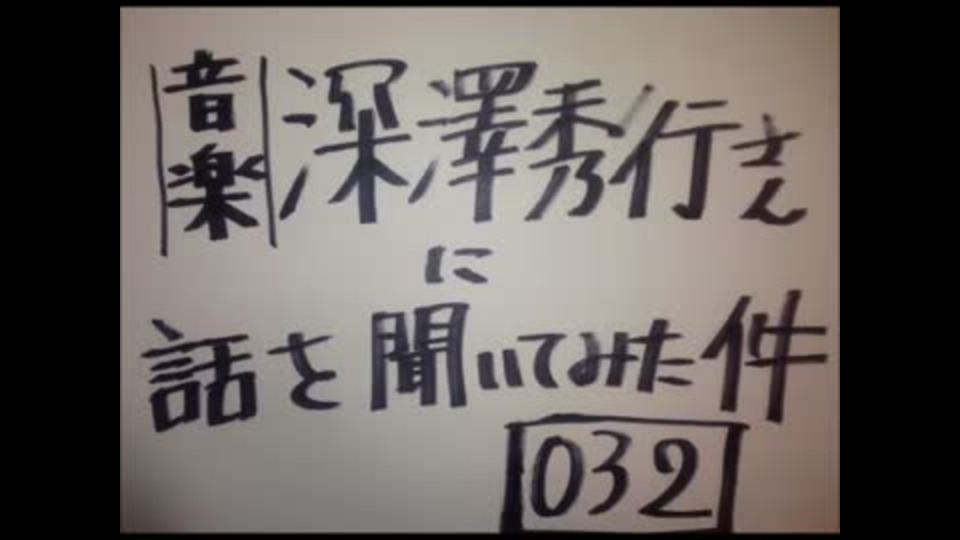 音楽 深澤秀行さん
に
話を聞いてみた件
032